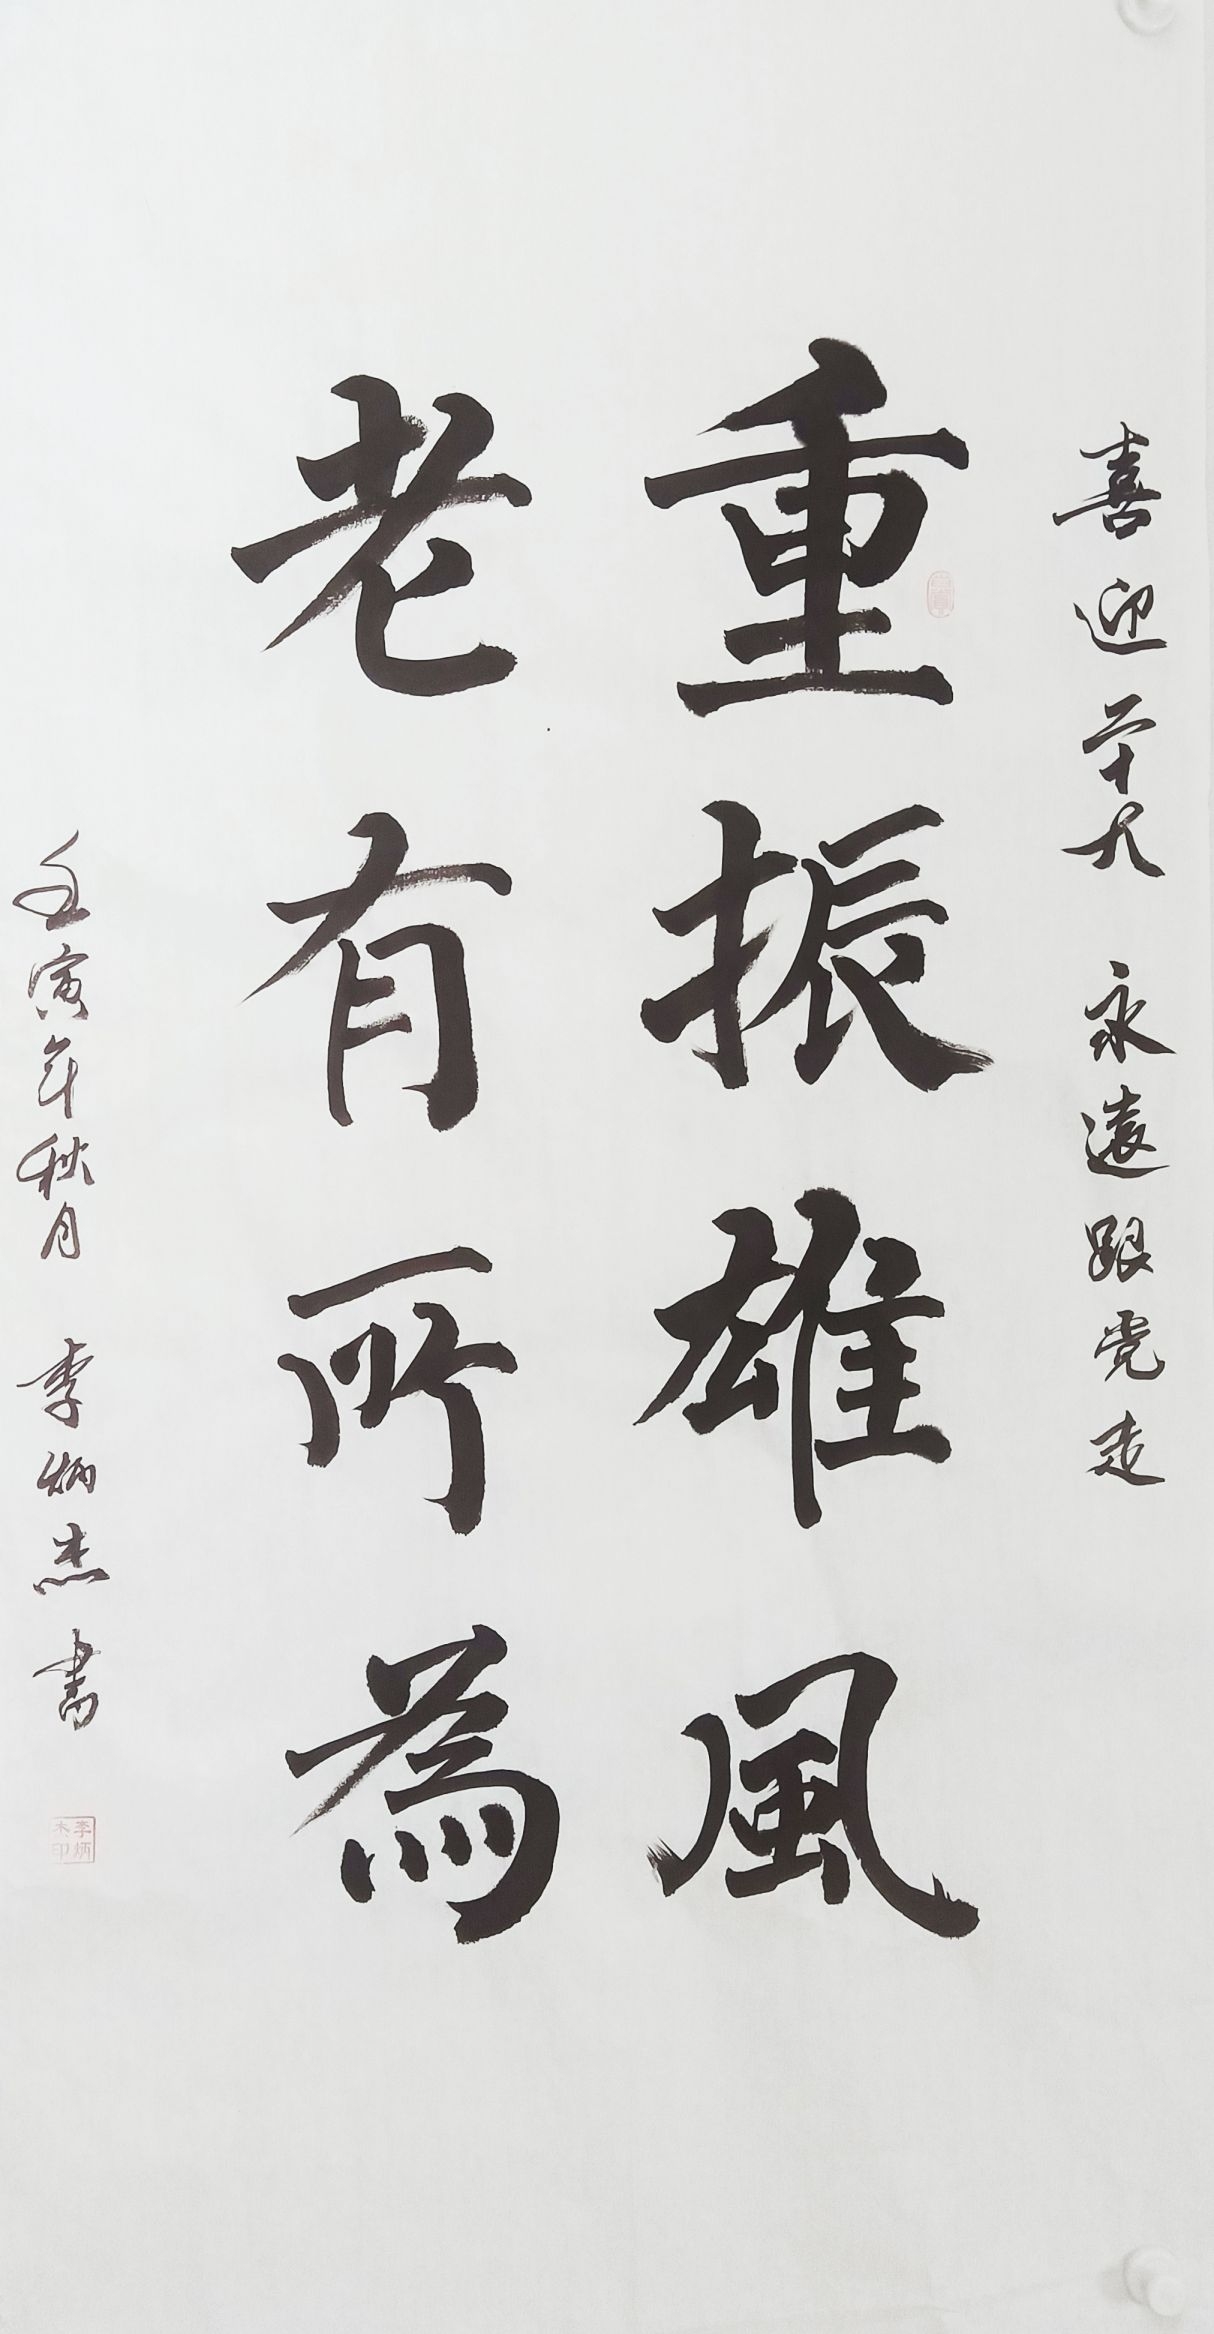 喜迎二十大 永遠跟党走
重振雄風
老有所為
壬寅年秋月 李炳杰書
李炳杰印